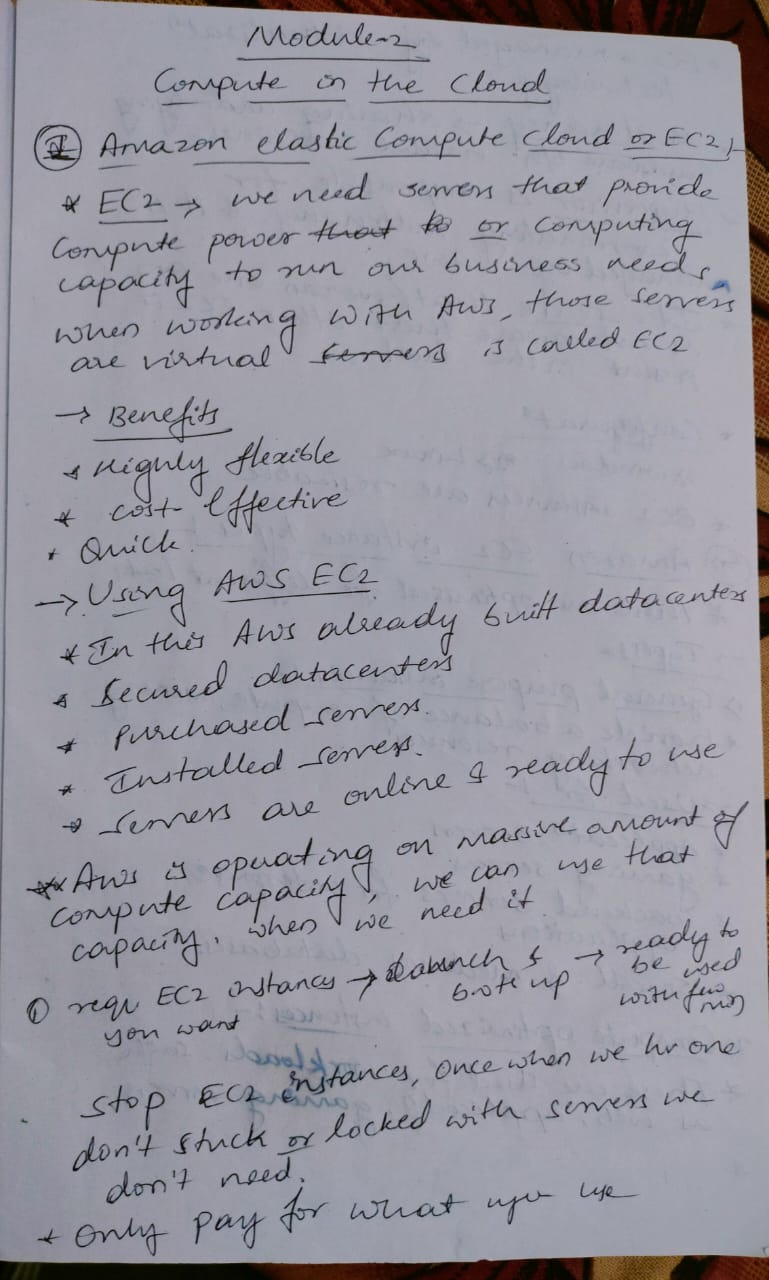 Module-2
Compute in the Cloud
① Amazon elastic Compute cloud or EC2,
* EC2 → we need servers that provide
compute power that to or computing
capacity to run our business needs,
when working with AWS, those servers
are virtual servers is called EC2
→ Benefits
* Highly flexible
* cost-effective
* Quick.
→ Using AWS EC2
* In this AWS already built datacenters
* Secured datacenters
* Purchased servers.
* Installed servers.
→ servers are online & ready to use
** Aws is operating on massive amount of
compute capacity, we can use that
capacity, when we need it
① requ EC2 instances → launch & → ready to
you want boot up be used
with few
stop EC2 instances, once when we hv one
don't stuck or locked with servers we
don't need.
* Only pay for what you use